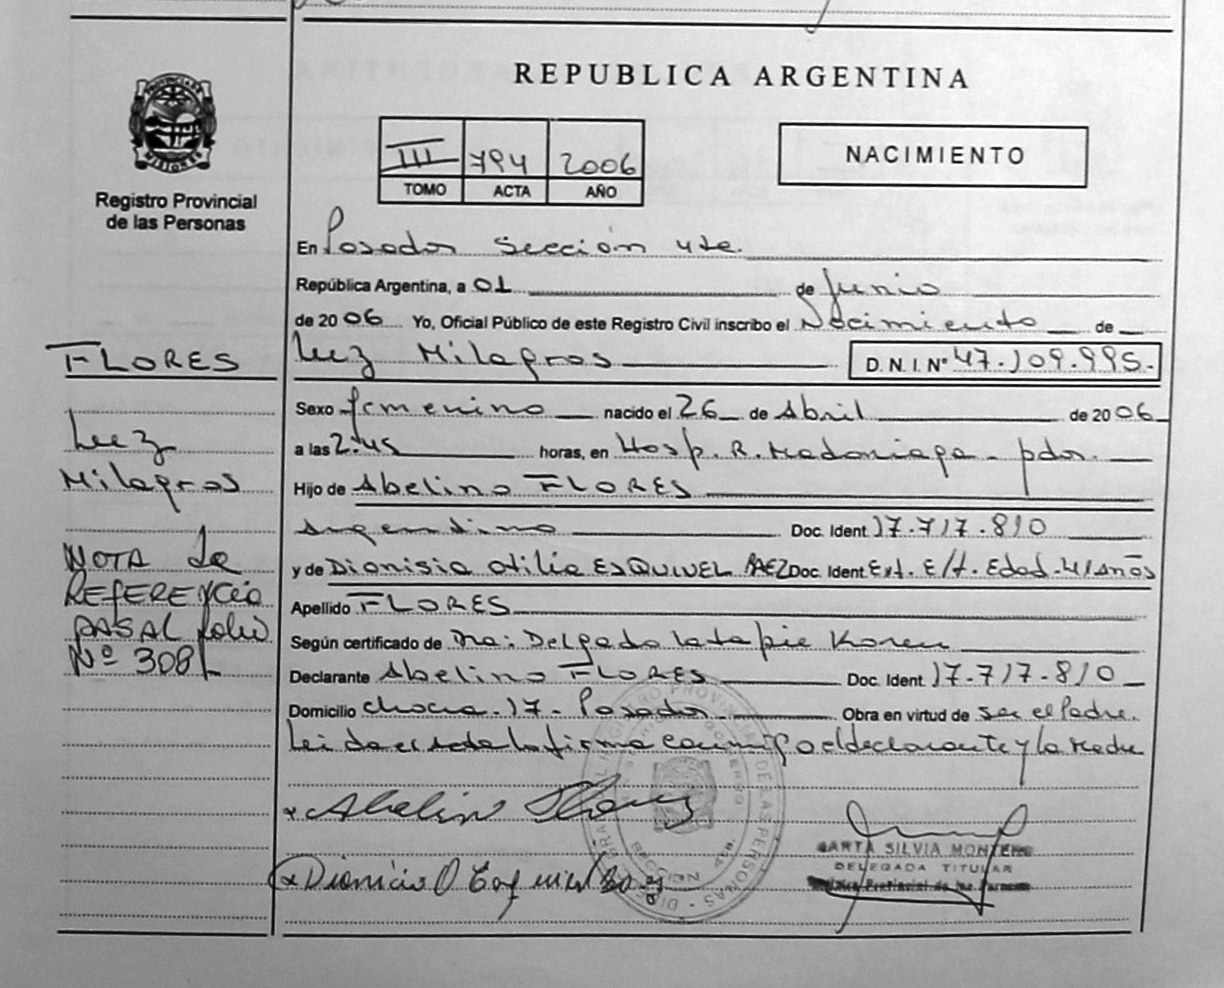 REPUBLICA ARGENTINA
PROVINCIA DE
MISIONES
Registro Provincial
de las Personas
III 794 2006
TOMO ACTA AÑO
NACIMIENTO
En Posadas Sección 4ta.
República Argentina, a 01 de Junio
de 2006 Yo, Oficial Público de este Registro Civil inscribo el Nacimiento de
Luz Milagros D.N.I. Nº 47.109.995.-
Sexo femenino nacido el 26 de Abril de 2006
a las 2:45 horas, en Hosp. R. Madariaga - pdas.
Hijo de Abelino FLORES
Argentino Doc. Ident. 17.717.810
y de Dionisia Otilia ESQUIVEL PAEZ Doc. Ident. Ext. E/t. Edad-41 Años
Apellido FLORES
Según certificado de Dra: Delgado Latapie Karen
Declarante Abelino FLORES Doc. Ident. 17.717.810
Domicilio chacra-17- Posadas Obra en virtud de ser el Padre.
Leida el acta la firma conmigo el declarante y la Madre
FLORES
Luz
Milagros
NOTA de
REFERENCIA
PASA AL folio
Nº 308
Abelino Flores
Dionicia O Esquivel Paez
MARTA SILVIA MONTERO
DELEGADA TITULAR
Registro Provincial de las Personas
REGISTRO PROVINCIAL DE LAS PERSONAS
SECCION 4ta.